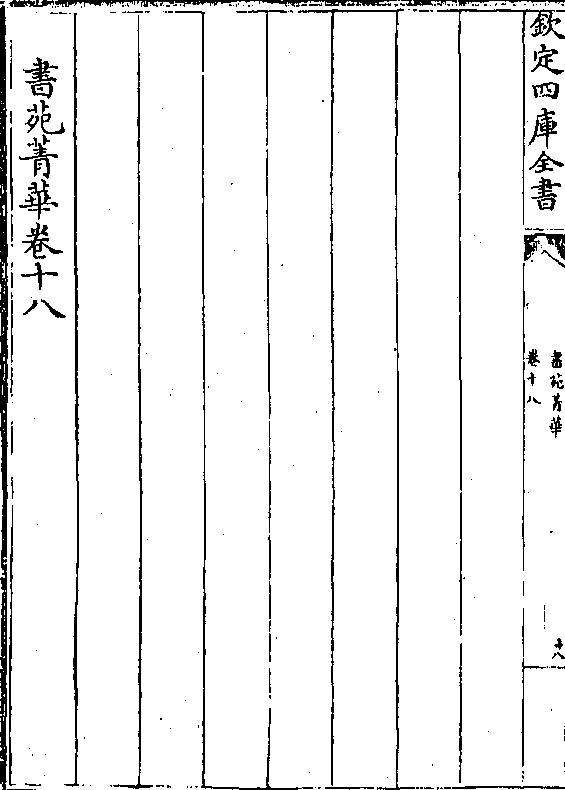 欽定四庫全書
書苑菁華
卷十八
十八
書苑菁華卷十八